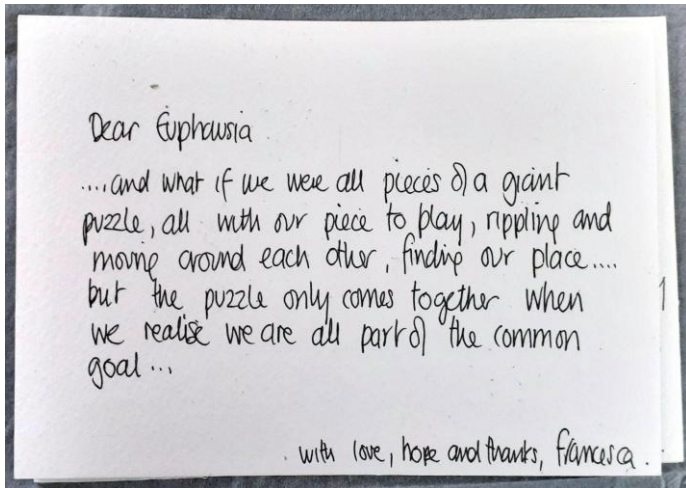 Dear Euphausia
....and what if we were all pieces of a giant
puzzle, all with our piece to play, rippling and
moving around each other, finding our place....
but the puzzle only comes together when
we realise we are all part of the common
goal...
with love, hope and thanks, francesca.